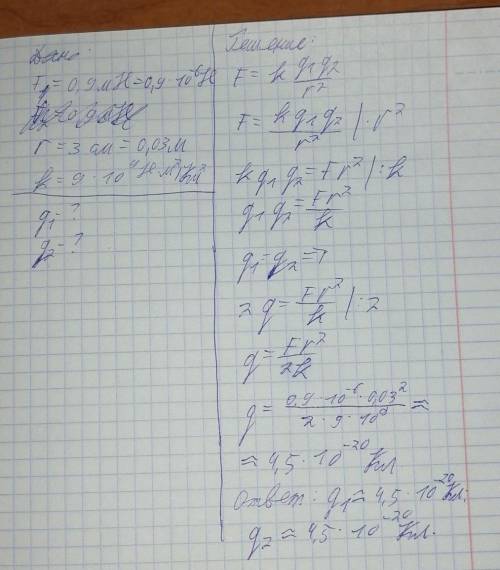 Дано:
F = 0,9 мН = 0,9 · 10⁻⁶ Н
r = 3 см = 0,03 м
k = 9 · 10⁹ Н · м²/Кл²
q₁ = ?
q₂ = ?
Решение:
F = k q₁q₂/r²
F = k q₁ q₂/r² | · r²
k q₁ q₂ = Fr² | : k
q₁ q₂ = Fr²/k
q₁ = q₂ =>
2 q = Fr²/k | : 2
q = Fr²/2k
q = 0,9 · 10⁻⁶ · 0,03²/2 · 9 · 10⁹ ≈
≈ 4,5 · 10⁻²⁰ Кл
Ответ: q₁ ≈ 4,5 · 10⁻²⁰ Кл;
q₂ ≈ 4,5 · 10⁻²⁰ Кл.